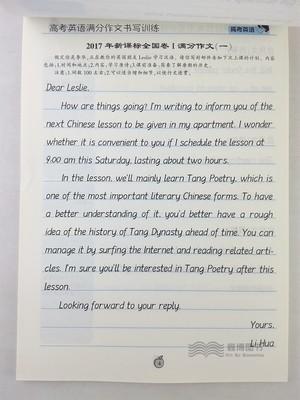 高考英语满分作文书写训练
高考英语
2017 年新课标全国卷 I 满分作文(一)
假定你是李华,正在教你的英国朋友 Leslie 学习汉语。请你写封邮件告知下次上课的计划。内容
包括:1.时间和地点;2.内容:学习唐诗;3.课前准备:简要了解唐朝的历史。
注意:1.词数 100 左右;2.可以适当增加细节,以使行文连贯。
Dear Leslie,
How are things going? I'm writing to inform you of the
next Chinese lesson to be given in my apartment. I wonder
whether it is convenient to you if I schedule the lesson at
9:00 am this Saturday, lasting about two hours.
In the lesson, we'll mainly learn Tang Poetry, which is
one of the most important literary Chinese forms. To have
a better understanding of it, you'd better have a rough
idea of the history of Tang Dynasty ahead of time. You can
manage it by surfing the Internet and reading related arti-
cles. I'm sure you'll be interested in Tang Poetry after this
lesson.
Looking forward to your reply.
Yours,
Li Hua